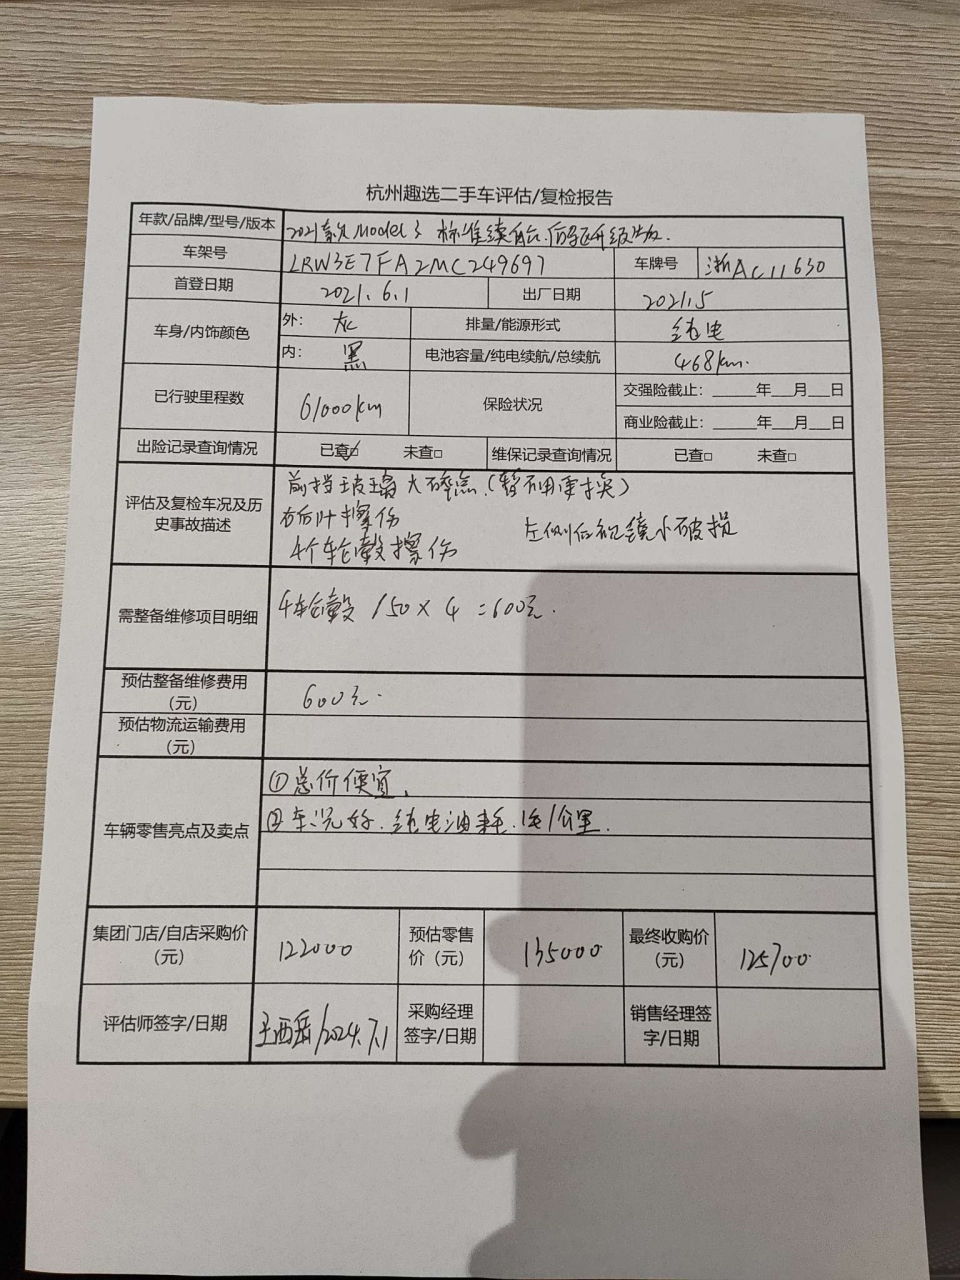 杭州趣选二手车评估/复检报告
年款/品牌/型号/版本 2021款 Model 3 标准续航.后驱升级版.
车架号 LRW3E7FA2MC249697 车牌号 浙AC11630
首登日期 2021.6.1 出厂日期 2021.5
车身/内饰颜色 外: 灰 排量/能源形式 纯电
内: 黑 电池容量/纯电续航/总续航 468km.
已行驶里程数 61000km 保险状况 交强险截止: 年 月 日
商业险截止: 年 月 日
出险记录查询情况 已查□ 未查□ 维保记录查询情况 已查□ 未查□
评估及复检车况及历史事故描述
前挡玻璃大碎点.(暂不用更换)
右后叶擦伤 左侧后视镜小破损
4个轮毂擦伤
需整备维修项目明细 4轮毂 150×4=600元.
预估整备维修费用(元) 600元.
预估物流运输费用(元)
车辆零售亮点及卖点
①总价便宜.
②车况好.纯电油耗.1毛/公里.
集团门店/自店采购价(元) 122000 预估零售价(元) 135000 最终收购价(元) 125700
评估师签字/日期 王西岳/2024.7.1 采购经理签字/日期 销售经理签字/日期